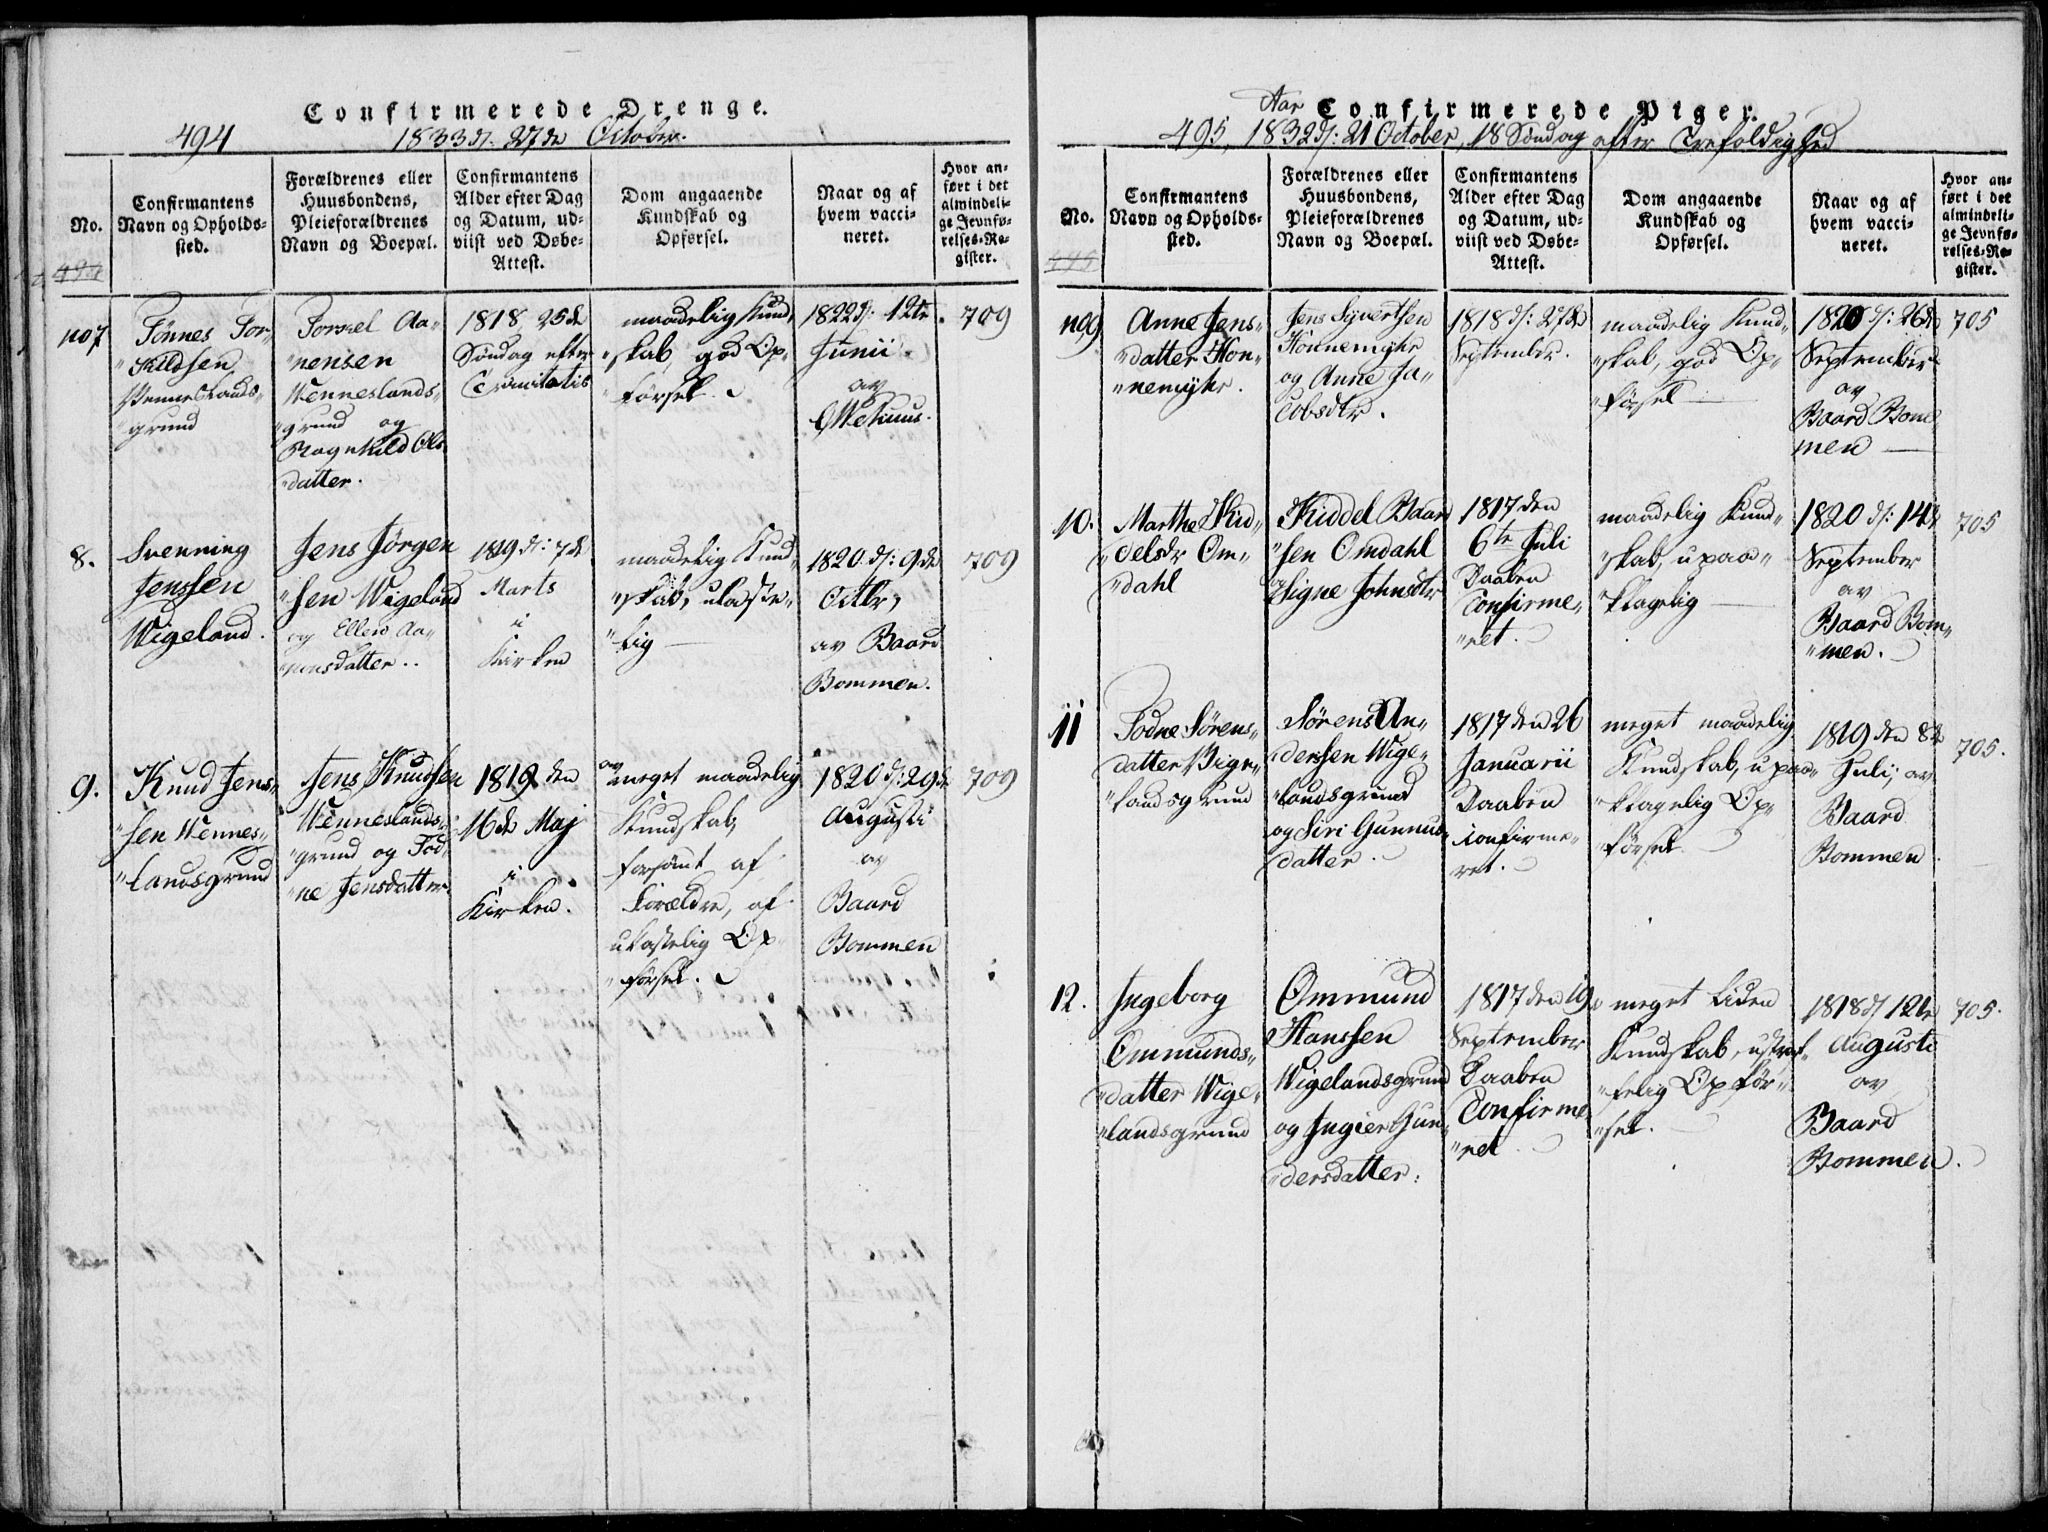 Confirmerede Drenge.
494 1833 d: 27de October.
No.
Confirmantens
Navn og Opholds-
sted.
Forældrenes eller
Huusbondens,
Pleieforældrenes
Navn og Boepæl.
Confirmantens
Alder efter Dag
og Datum, ud-
viist ved Døbe-
Attest.
Dom angaaende
Kundskab og
Opførsel.
Naar og af
hvem vacci-
neret.
Hvor an-
ført i det
almindeli-
ge Jevnfø-
relses-Re-
gister.
494
no7
Tönnes Tor-
"Kildsen,
Wenneslands-
"grund
Torkel Aa-
"nensen
Wenneslands-
"grund og
Ragnhild Ols
"datter.
1818 25de
Søndag efter
Trinitatis
maadelig Kund-
"skab, god Op-
"førsel.
1822 d: 12te
Junii
av
709
8.
Svenning
Jenssen
Wigeland.
Jens Jörgen
"sen Wigeland
og Ellen Aa-
"nensdatter..
1819 d: 7de
Marts
i
Kirken
maadelig Kund-
"skab, ulaste-
"lig
1820 d: 9de
Octbr,
av Baard
Bommen.
709
9.
Knud Jens-
"sen Wennes-
"landsgrund
Jens Knudsen
Wenneslands-
"grund og Tod-
"ne Jensdatter.
1819 den
16de Maj
i
Kirken.
av meget maadelig
Kundskab,
forsömt af
Forældre, af
ulastelig Op-
"førsel.
1820 d: 29de
Augusti
av
Baard
Bommen
709
Aar Confirmerede Piger.
495, 1832 d: 21 October, 18 Søndag efter Trefoldighed
No.
Confirmantens
Navn og Opholds-
sted.
Forældrenes eller
Huusbondens,
Pleieforældrenes
Navn og Boepæl.
Confirmantens
Alder efter Dag
og Datum, ud-
viist ved Døbe-
Attest.
Dom angaaende
Kundskab og
Opførsel.
Naar og af
hvem vacci-
neret.
Hvor an-
ført i det
almindeli-
ge Jevnfø-
relses-Re-
gister.
495
no9
Anne Jens-
"datter Hon-
"nemyhr.
Jens Syvertsen
Honnemyhr
og Anne Ja-
cobsdtr.
1818 d: 27de
September.
maadelig Kund-
"skab, god Op-
"førsel
1820 d: 26de
September
av
Baard Bom
men
705
10.
Marthe Kid-
"delsdr Om-
"dahl
Kiddel Baar
"sen Omdahl
og Signe Johnsdtr
1817 den
6te Juli
Daaben
Confirme-
"ret.
maadelig Kund-
"skab, upaa-
"klagelig
1820 d: 14de
September
av
Baard Bom-
"men.
705
11
Todne Sörens-
datter Vige-
"landsgrund
Sörens An-
derssen Wige-
"landsgrund
og Siri Gunnus
datter.
1817 den 26
Januarii
Daaben
confirme-
ret.
meget maadelig
Kundskab, upaa-
"klagelig Op-
"førsel
1819 den 8de
Juli, av
Baard
Bommen
705.
12.
Ingeborg
Ommunds-
"datter Wige-
"landsgrund
Ommund
Hanssen
Wigelandsgrund
og Ingier Gun-
"dersdatter.
1817 den 19
September
Daaben
Confirme
"ret
meget liden
Kundskab, ustraf-
"felig Opför-
"sel.
1818 d 12te
Augusti
av
Baard
Bommen.
705.